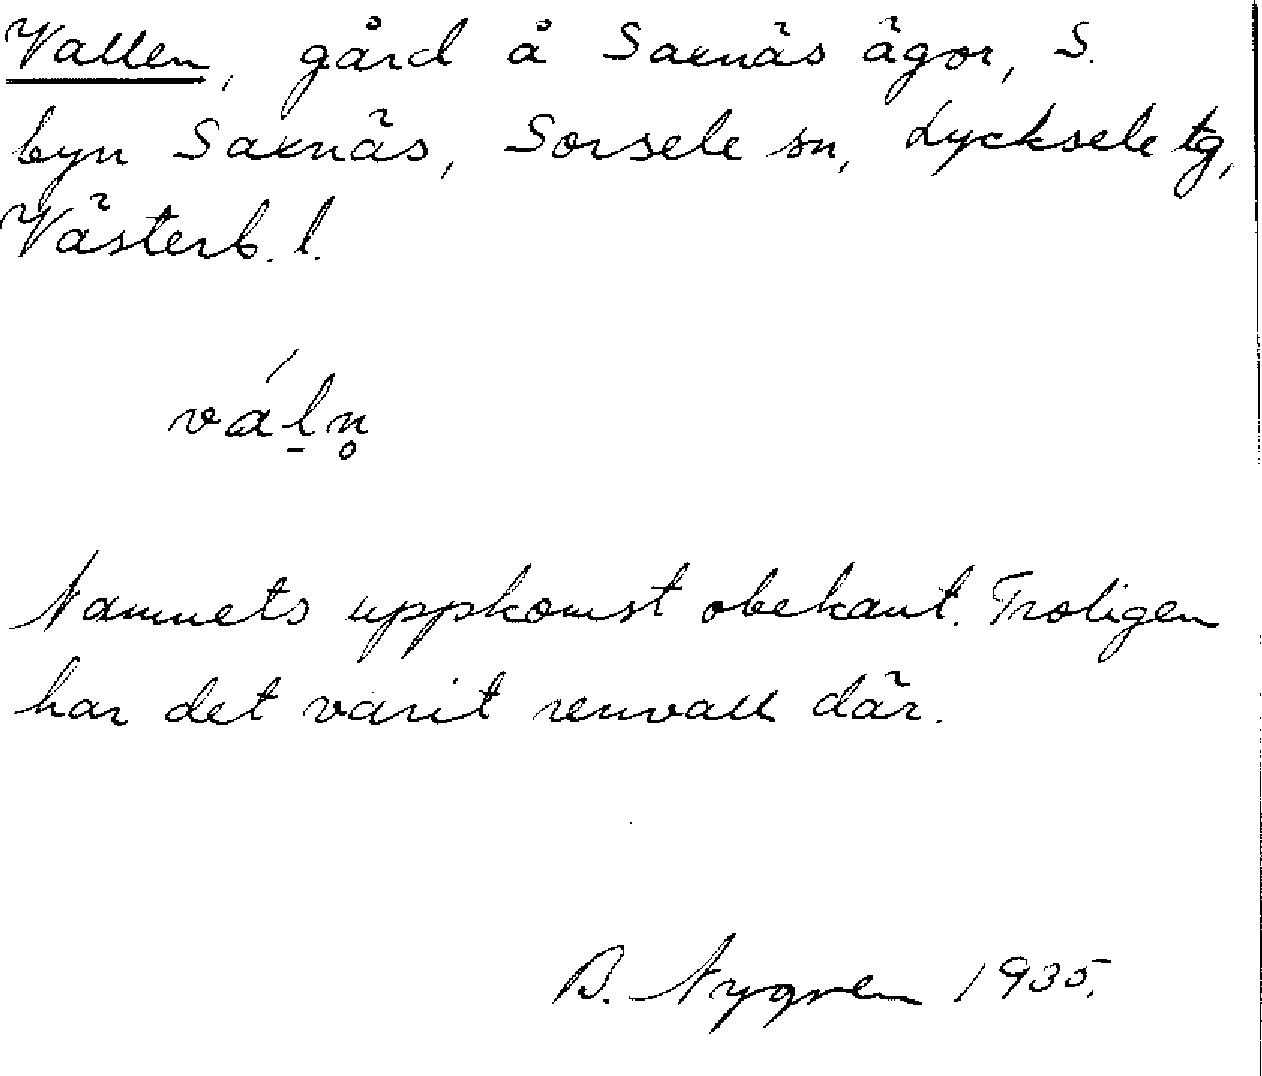 Vallen, gård å Saxnäs ägor, S.
byn Saxnäs, Sorsele sn, Lycksele tg,
Västerb. l.
vá́l̠n̥
Namnets uppkomst obekant. Troligen
har det varit renvall där.
B. Nygren 1935.